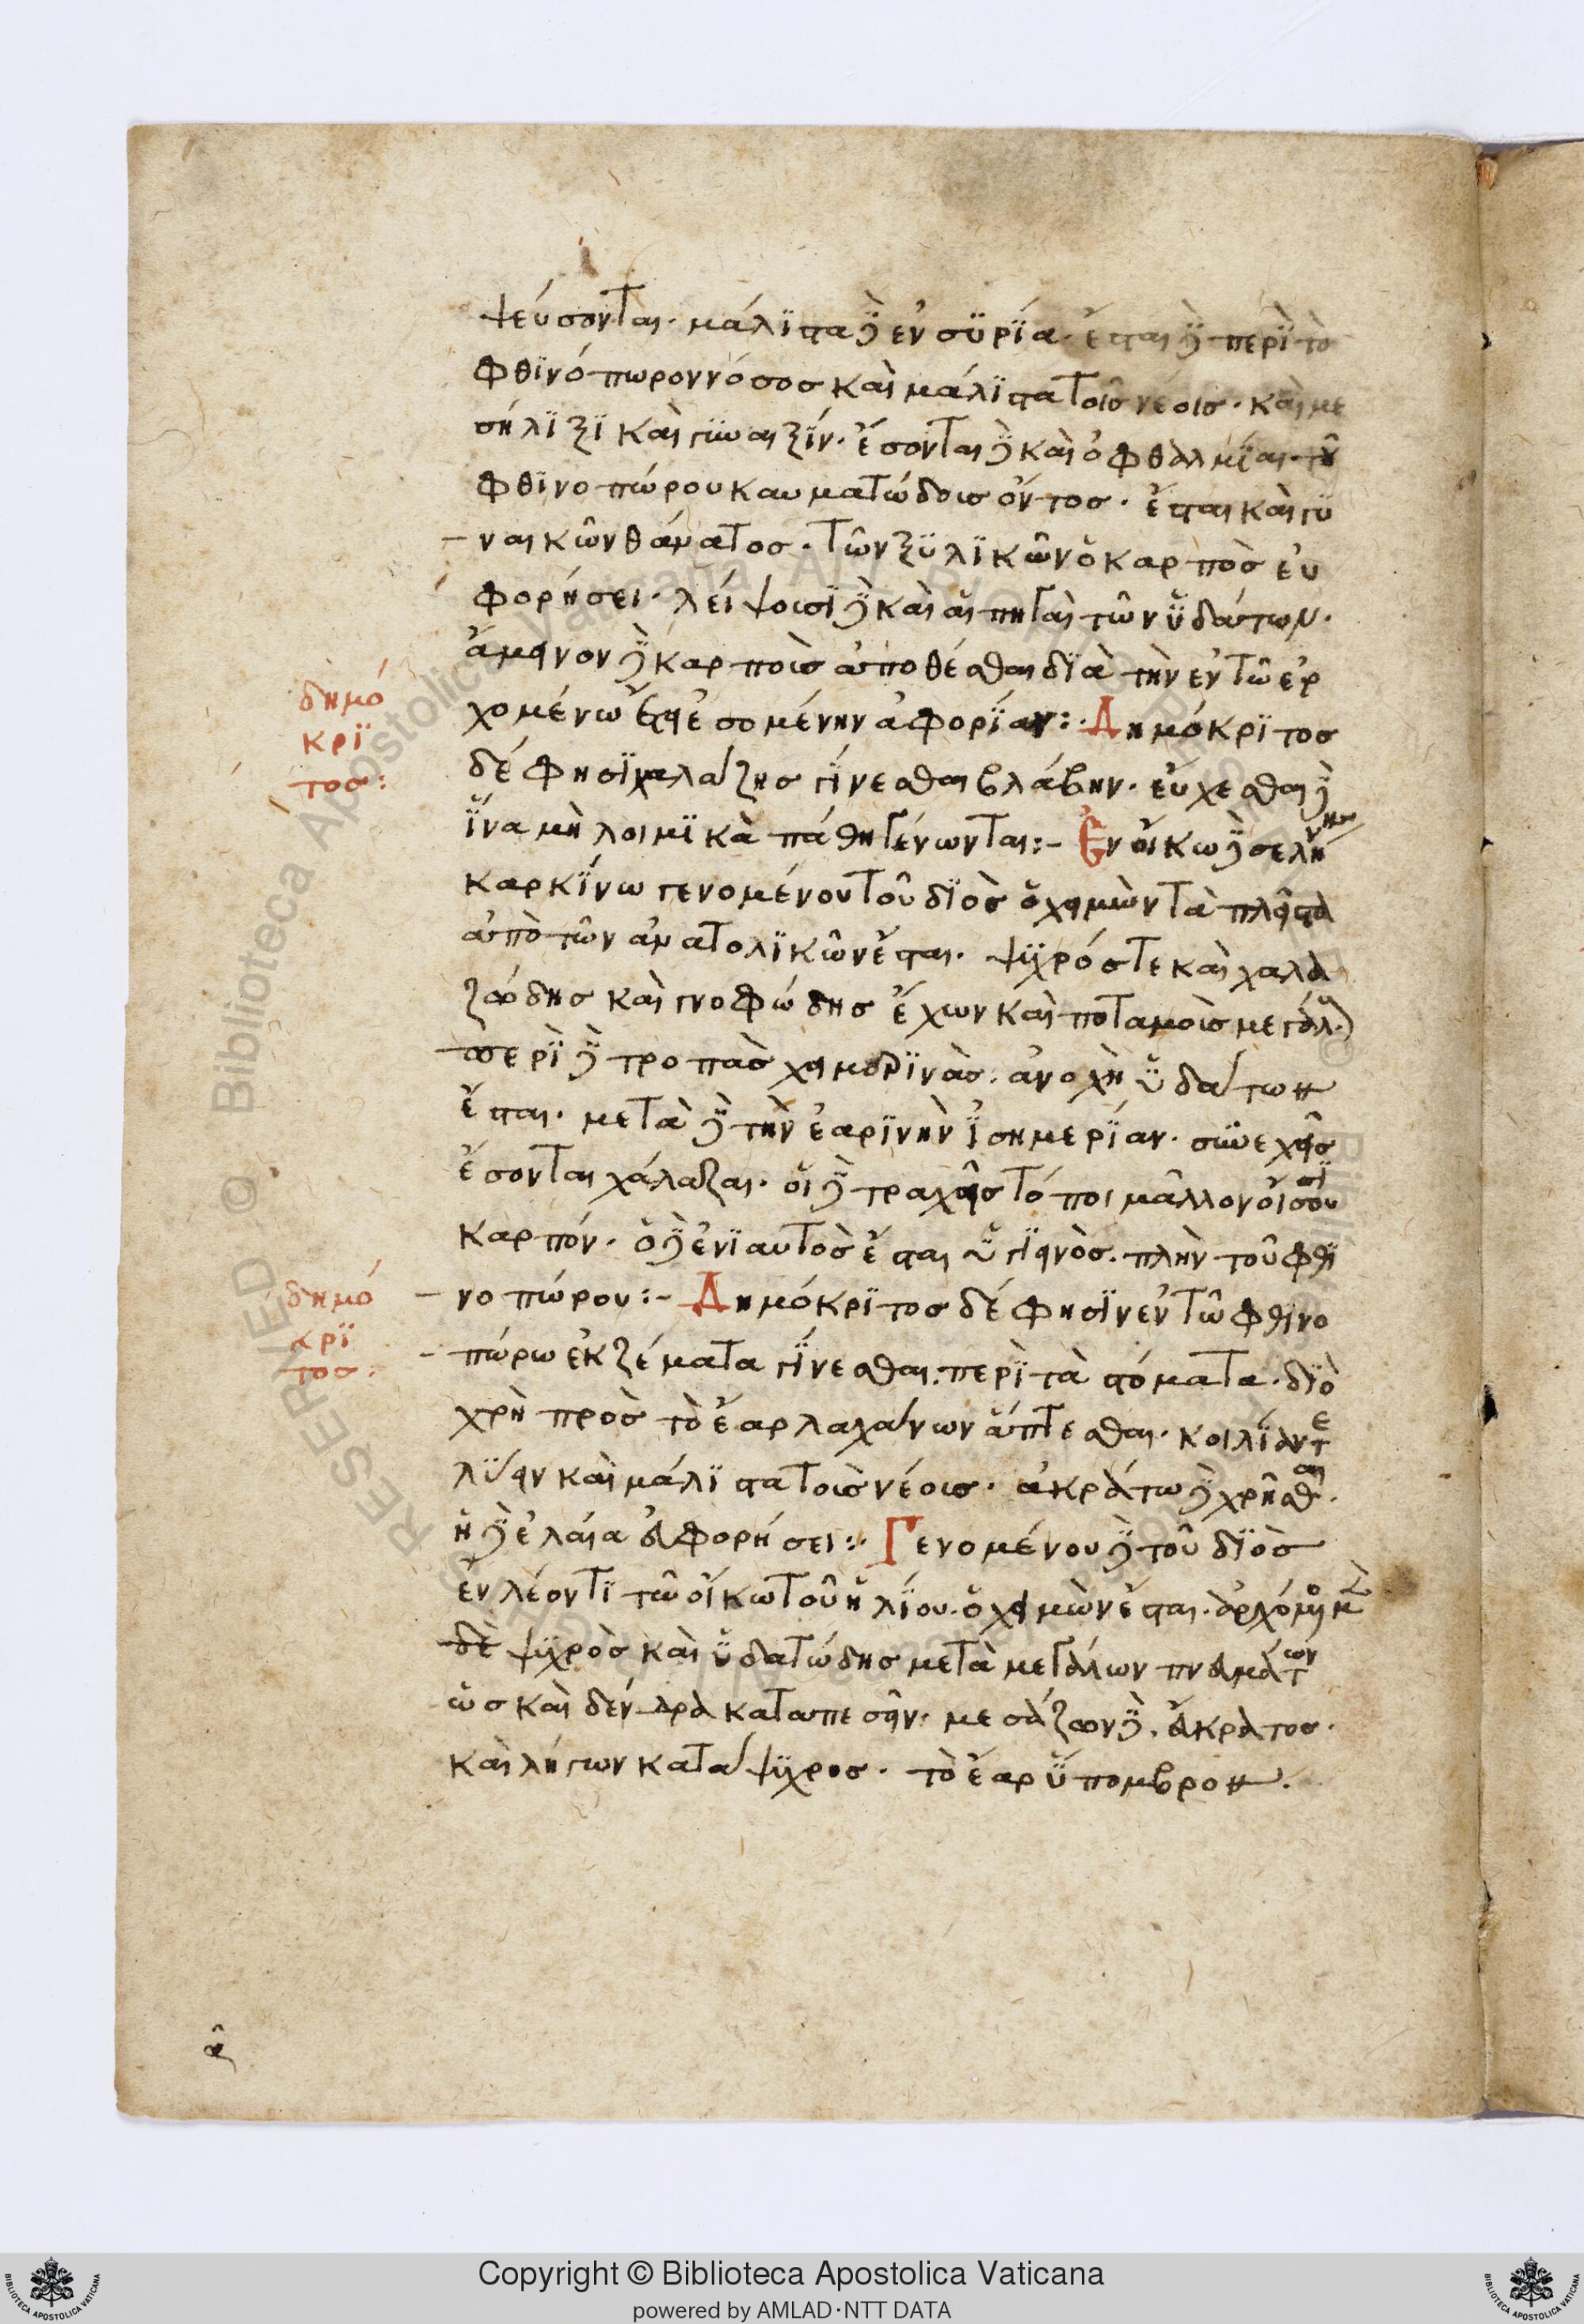 ψεύσονται· μάλϊστα δὲ ἐν συρϊία· ἔσται δὲ περὶ τὸ
φθϊνόπωρον νόσος καὶ μάλϊστα τοῖς νέοις· καὶ με
σήλϊξϊ καὶ γυναιξΐν· ἔσονται δὲ καὶ ὀφθαλμϊαι· τοῦ
φθϊνοπώρου καυματώδους ὄντος· ἔσται καὶ γυ
ναικῶν θάνατος· τῶν ξυλϊκῶν ὁ καρπὸς εὐ
φορήσει· λείψουσϊ δὲ καὶ αἱ πηγαὶ τῶν ὑδάτων·
ἄμεινον δὲ καρποὺς ἀποθέσθαι δϊὰ τὴν ἐν τῶ ἐρ
δημό
κρϊ
τος:
χομένω ἔτει ἐσομένην ἀφορΐαν:· Δημόκρϊτος
δέ φησϊ χαλάζης γΐνεσθαι βλάβην· εὔχεσθαι δὲ
ἵνα μὴ λοιμϊκὰ πάθη γένωνται:– Ἐν οἴκω δὲ σελήνης
καρκΐνω γενομένου τοῦ δϊὸς ὁ χειμὼν τὰ πλεῖστα
ἀπὸ τῶν ἀνατολϊκῶν ἔσται· ψυχρός τε καὶ χαλα
ζώδης καὶ γνοφώδης ἔχων καὶ ποταμοὺς μεγάλους·
περὶ δὲ τροπὰς χειμερϊνὰς· ἀνοχὴ ὑδάτων
ἔσται· μετὰ δὲ τὴν ἐαρϊνὴν ἰσημερΐαν· συνεχεῖς
ἔσονται χάλαζαι· οἱ δὲ τραχεῖς τόποι μᾶλλον οἴσουσϊ
καρπόν· ὁ δὲ ἐνϊαυτὸς ἔσται ὑγϊεινὸς· πλὴν τοῦ φθϊ
δημό
κρϊ
τος·
νοπώρου:– Δημόκρϊτος δέ φησϊν ἐν τῶ φθϊνο
πώρω ἐκζέματα γΐνεσθαι· περὶ τὰ στόματα· δϊὸ
χρὴ πρὸς τὸ ἔαρ λαχάνων ἅπτεσθαι· κοιλΐαν τε
λύειν καὶ μάλϊστα τοὺς νέους· ἀκράτω δὲ χρῆσθαι·
ἡ δὲ ἐλαία εὐφορήσει:· Γενομένου δὲ τοῦ δϊὸς
ἐν λέοντϊ τῶ οἴκω τοῦ ἡλΐου· ὁ χειμὼν ἔσται· ἀρχόμενος μὲν
δὲ ψυχρὸς καὶ ὑδατώδης μετὰ μεγάλων πνευμάτων
ὡς καὶ δένδρα καταπεσεῖν· μεσάζων δὲ· εὔκρατος·
καὶ λήγων κατάψυχρος· τὸ ἔαρ ὕπομβρον·
Copyright © Biblioteca Apostolica Vaticana
powered by AMLAD·NTT DATA